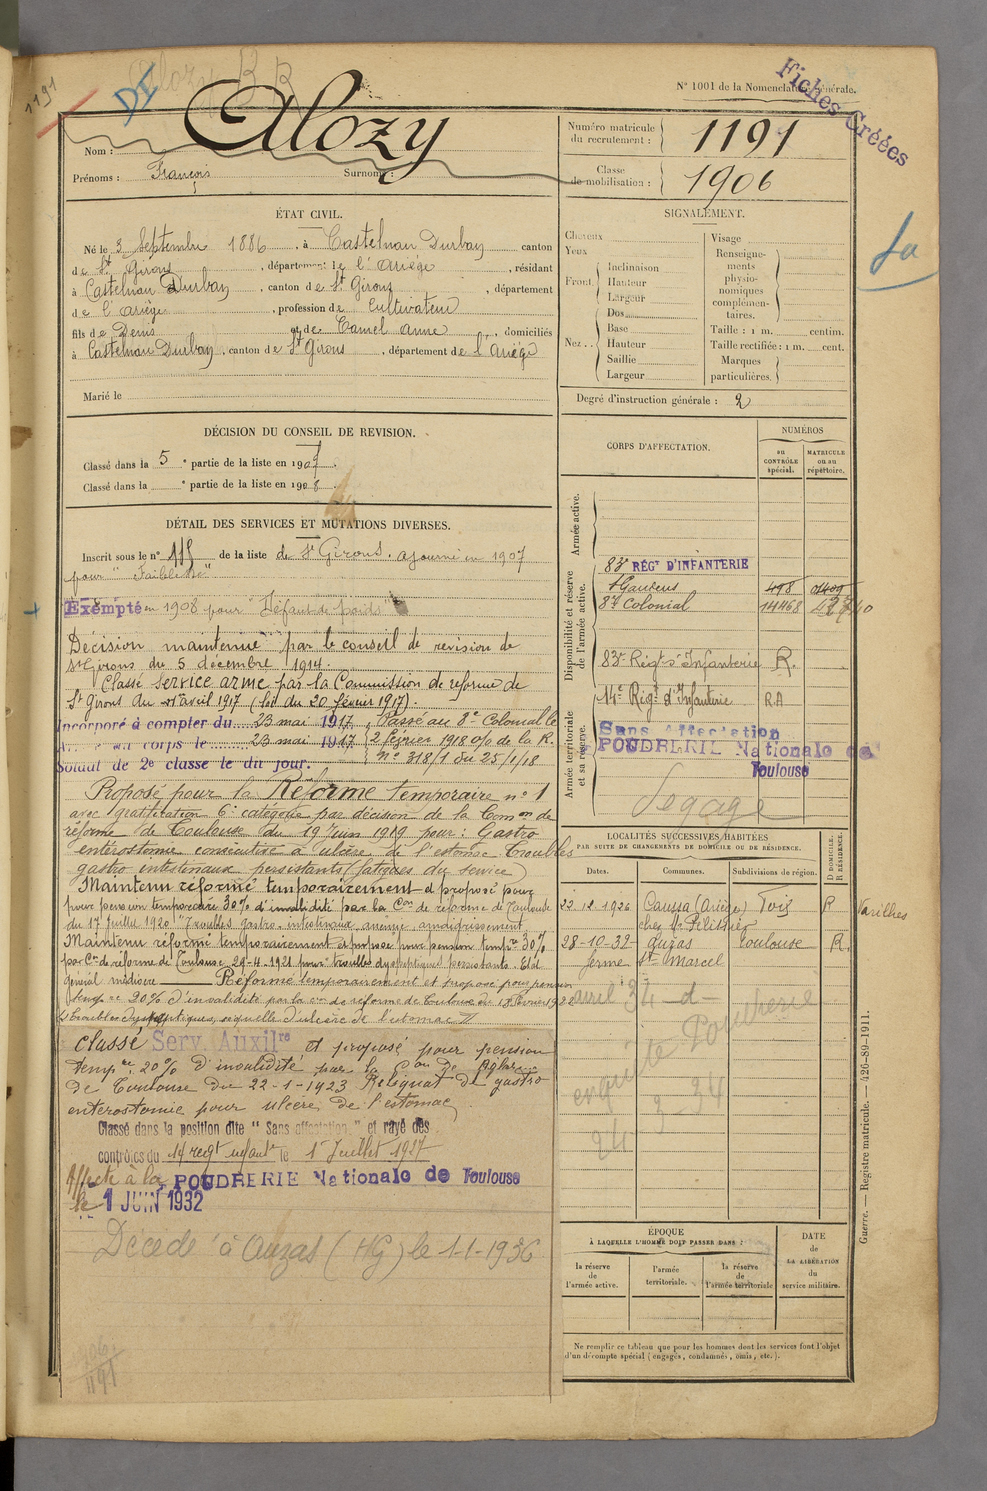 1191
DI
Alozy B R
N° 1001 de la Nomenclature générale.
Fiches Créées
Nom : Alozy
Prénoms : François Surnoms :
Numéro matricule du recrutement : 1191
Classe de mobilisation : 1906
ÉTAT CIVIL.
Né le 3 Septembre 1886, à Castelnau Durban canton
de St Girons, département de l'Ariège, résidant
à Castelnau Durban, canton de St Girons, département
de l'Ariège, profession de Cultivateur
fils de Denis et de Camel Anne, domiciliés
à Castelnau Durban, canton de St Girons, département de l'Ariège
Marié le
SIGNALEMENT.
Cheveux
Yeux
Front
Inclinaison
Hauteur
Largeur
Nez
Dos
Base
Hauteur
Saillie
Largeur
Visage
Renseignements physionomiques complémentaires.
Taille : 1 m. centim.
Taille rectifiée : 1 m. cent.
Marques particulières.
Degré d'instruction générale : 2
DÉCISION DU CONSEIL DE REVISION.
Classé dans la 5e partie de la liste en 1907.
Classé dans la e partie de la liste en 1908.
DÉTAIL DES SERVICES ET MUTATIONS DIVERSES.
Inscrit sous le n° 115 de la liste de St Girons. ajourné en 1907
pour "Faiblesse"
Exempté en 1908 pour "Défaut de poids"
Décision maintenue par le conseil de revision de
St Girons du 5 décembre 1914.
Classé Service armé par la Commission de réforme de
St Girons du avril 1917 (loi du 20 février 1917).
Incorporé à compter du 23 mai 1917 Passé au 8e Colonial le
corps le 23 mai 1917 2 février 1918 o/o de la R.
Soldat de 2e classe le dit jour. n° 318/1 du 25/1/18
Proposé pour la Réforme temporaire n° 1
avec gratification 6e catégorie par décision de la Comon de
réforme de Toulouse du 19 Juin 1919 pour : Gastro
entérostomie consécutive à ulcère de l'estomac. Troubles
gastro intestinaux persistants (fatigues du service)
Maintenu réformé temporairement et proposé pour
pour pension temporaire 30% d'invalidité par la Con de réforme de Toulouse
du 17 Juillet 1920 "Troubles gastro-intestinaux, anémie, amaigrissement
Maintenu réformé temporairement et proposé pour pension tempre 30%
par Con de réforme de Toulouse 29-4-1921 pour : troubles dyspeptiques persistants. Etat
général médiocre Réformé temporairement et proposé pour pension
tempre 20% d'invalidité par la Con de réforme de Toulouse du février 1922
troubles dyspeptiques, séquelle d'ulcère de l'estomac
Classé Serv. Auxilre et proposé pour pension
tempre 20% d'invalidité par la Con De
de Toulouse du 22-1-1923 Reliquat de gastro
enterostomie pour ulcère de l'estomac
Classé dans la position dite "Sans affectation" et rayé des
contrôles du 14 regt infant le 1er Juillet 1927
Affecté à la POUDRERIE Nationale de Toulouse
le 1 JUIN 1932
Décédé à Auzas (HG) le 1-1-1936
1906
1191
CORPS D'AFFECTATION.
NUMÉROS
au CONTRÔLE spécial.
MATRICULE ou au répertoire.
Armée active.
Disponibilité et réserve de l'armée active.
83e RÉGt D'INFANTERIE
St Gaudens 498
8e Colonial 14468
83e Régt d'Infanterie R.
Armée territoriale et sa réserve.
14e Régt d'Infanterie RA
Sans Affectation
POUDRERIE Nationale de
Toulouse
Degagé
LOCALITÉS SUCCESSIVES HABITÉES
PAR SUITE DE CHANGEMENTS DE DOMICILE OU DE RÉSIDENCE.
Dates. Communes. Subdivisions de région. D DOMICILE. R RÉSIDENCE.
22.12.1926 Caussa (Ariège) Foix R Varilhes
chez Mr Pélissier
28-10-32 Auzas Toulouse R.
ferme St Marcel
avril 34
enquête Poudrerie
3-34
ÉPOQUE
À LAQUELLE L'HOMME DOIT PASSER DANS :
la réserve de l'armée active.
l'armée territoriale.
la réserve de l'armée territoriale
DATE de LA LIBÉRATION du service militaire.
Ne remplir ce tableau que pour les hommes dont les services font l'objet
d'un décompte spécial (engagés, condamnés, omis, etc.).
Guerre. — Registre matricule. — 426-89-1911.